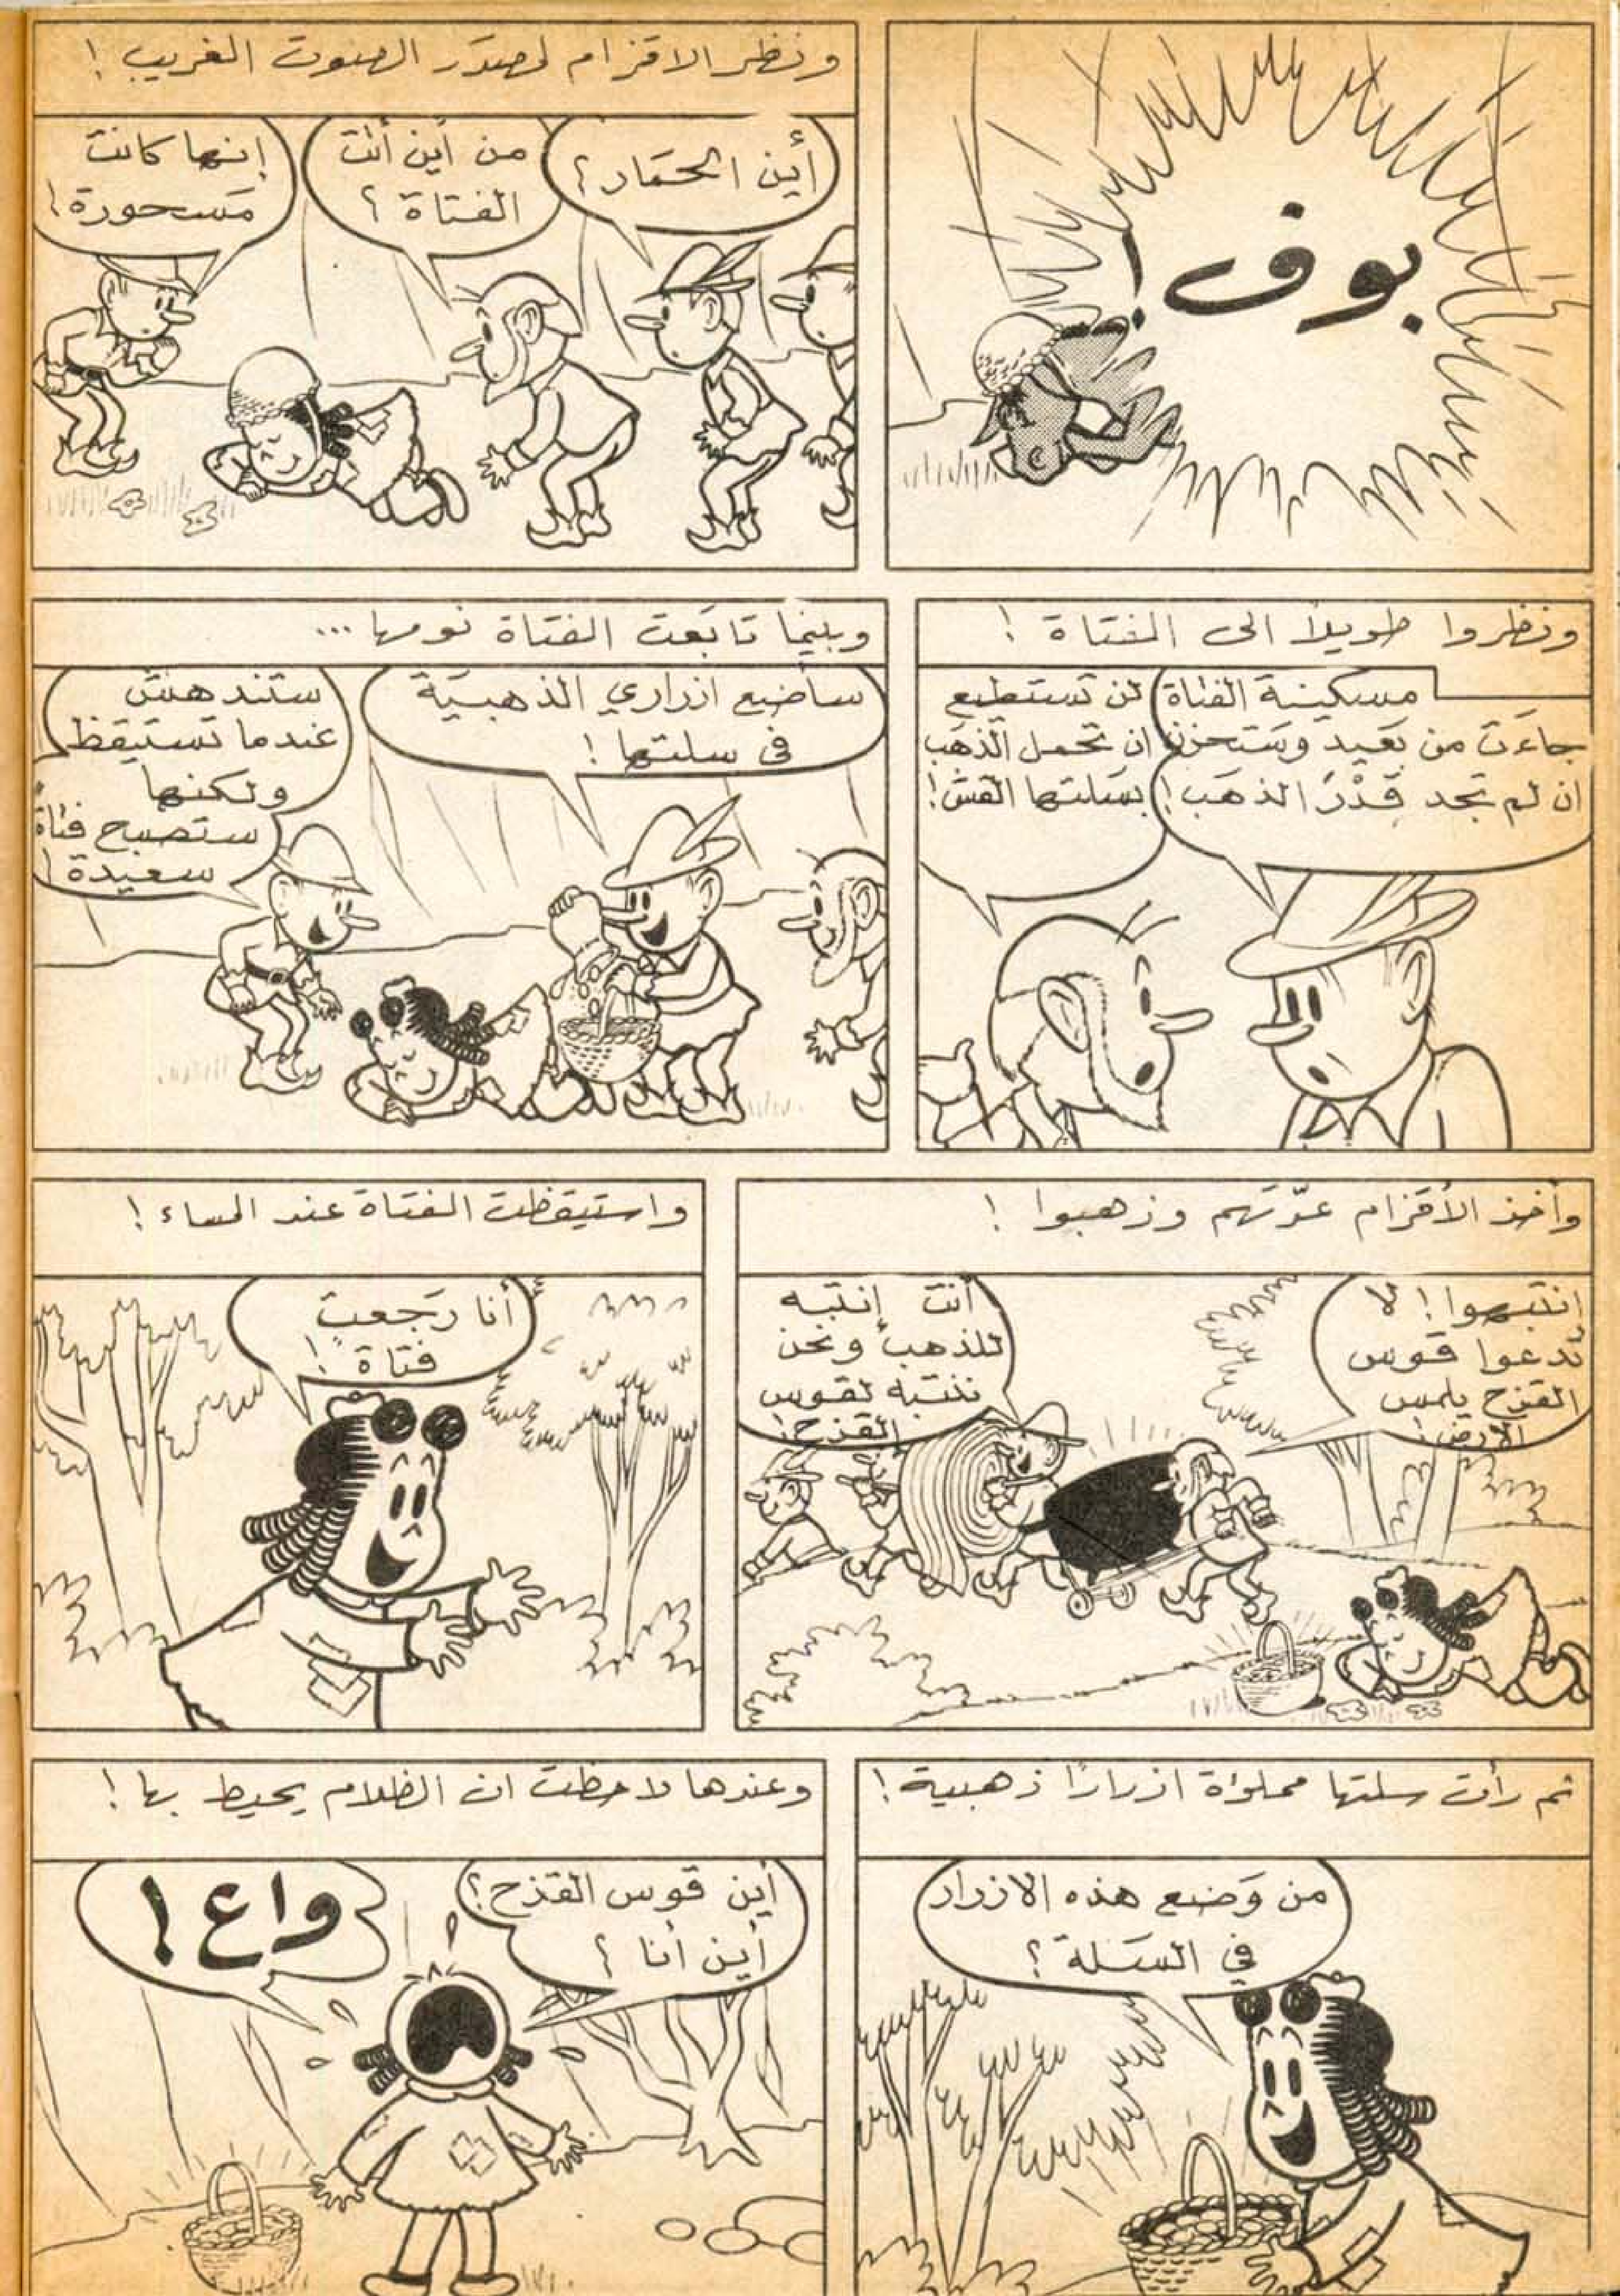 بوف!
ونظر الاقزام لمصدر الصوت الغريب!
أين الحمار؟
من أين أتت
الفتاة؟
إنها كانت
مسحورة!
ونظروا طويلاً الى الفتاة!
مسكينة الفتاة
جاءت من بعيد وستحزن
ان لم تجد قدر الذهب!
لن تستطيع
ان تحمل الذهب
بسلتها القش!
وبينما تابعت الفتاة نومها...
سأضع ازراري الذهبية
في سلتها!
ستندهش
عندما تستيقظ
ولكنها
ستصبح فتاة
سعيدة!
وأخذ الأقزام عدّتهم وذهبوا!
إنتبهوا! لا
تدعوا قوس
القزح يلمس
الارض!
أنت إنتبه
للذهب ونحن
ننتبه لقوس
القزح!
واستيقظت الفتاة عند المساء!
أنا رجعت
فتاة!
ثم رأت سلتها مملؤة ازراراً ذهبية!
من وضع هذه الازرار
في السلة؟
وعندها لاحظت ان الظلام يحيط بها!
أين قوس القزح؟
أين أنا؟
واع!